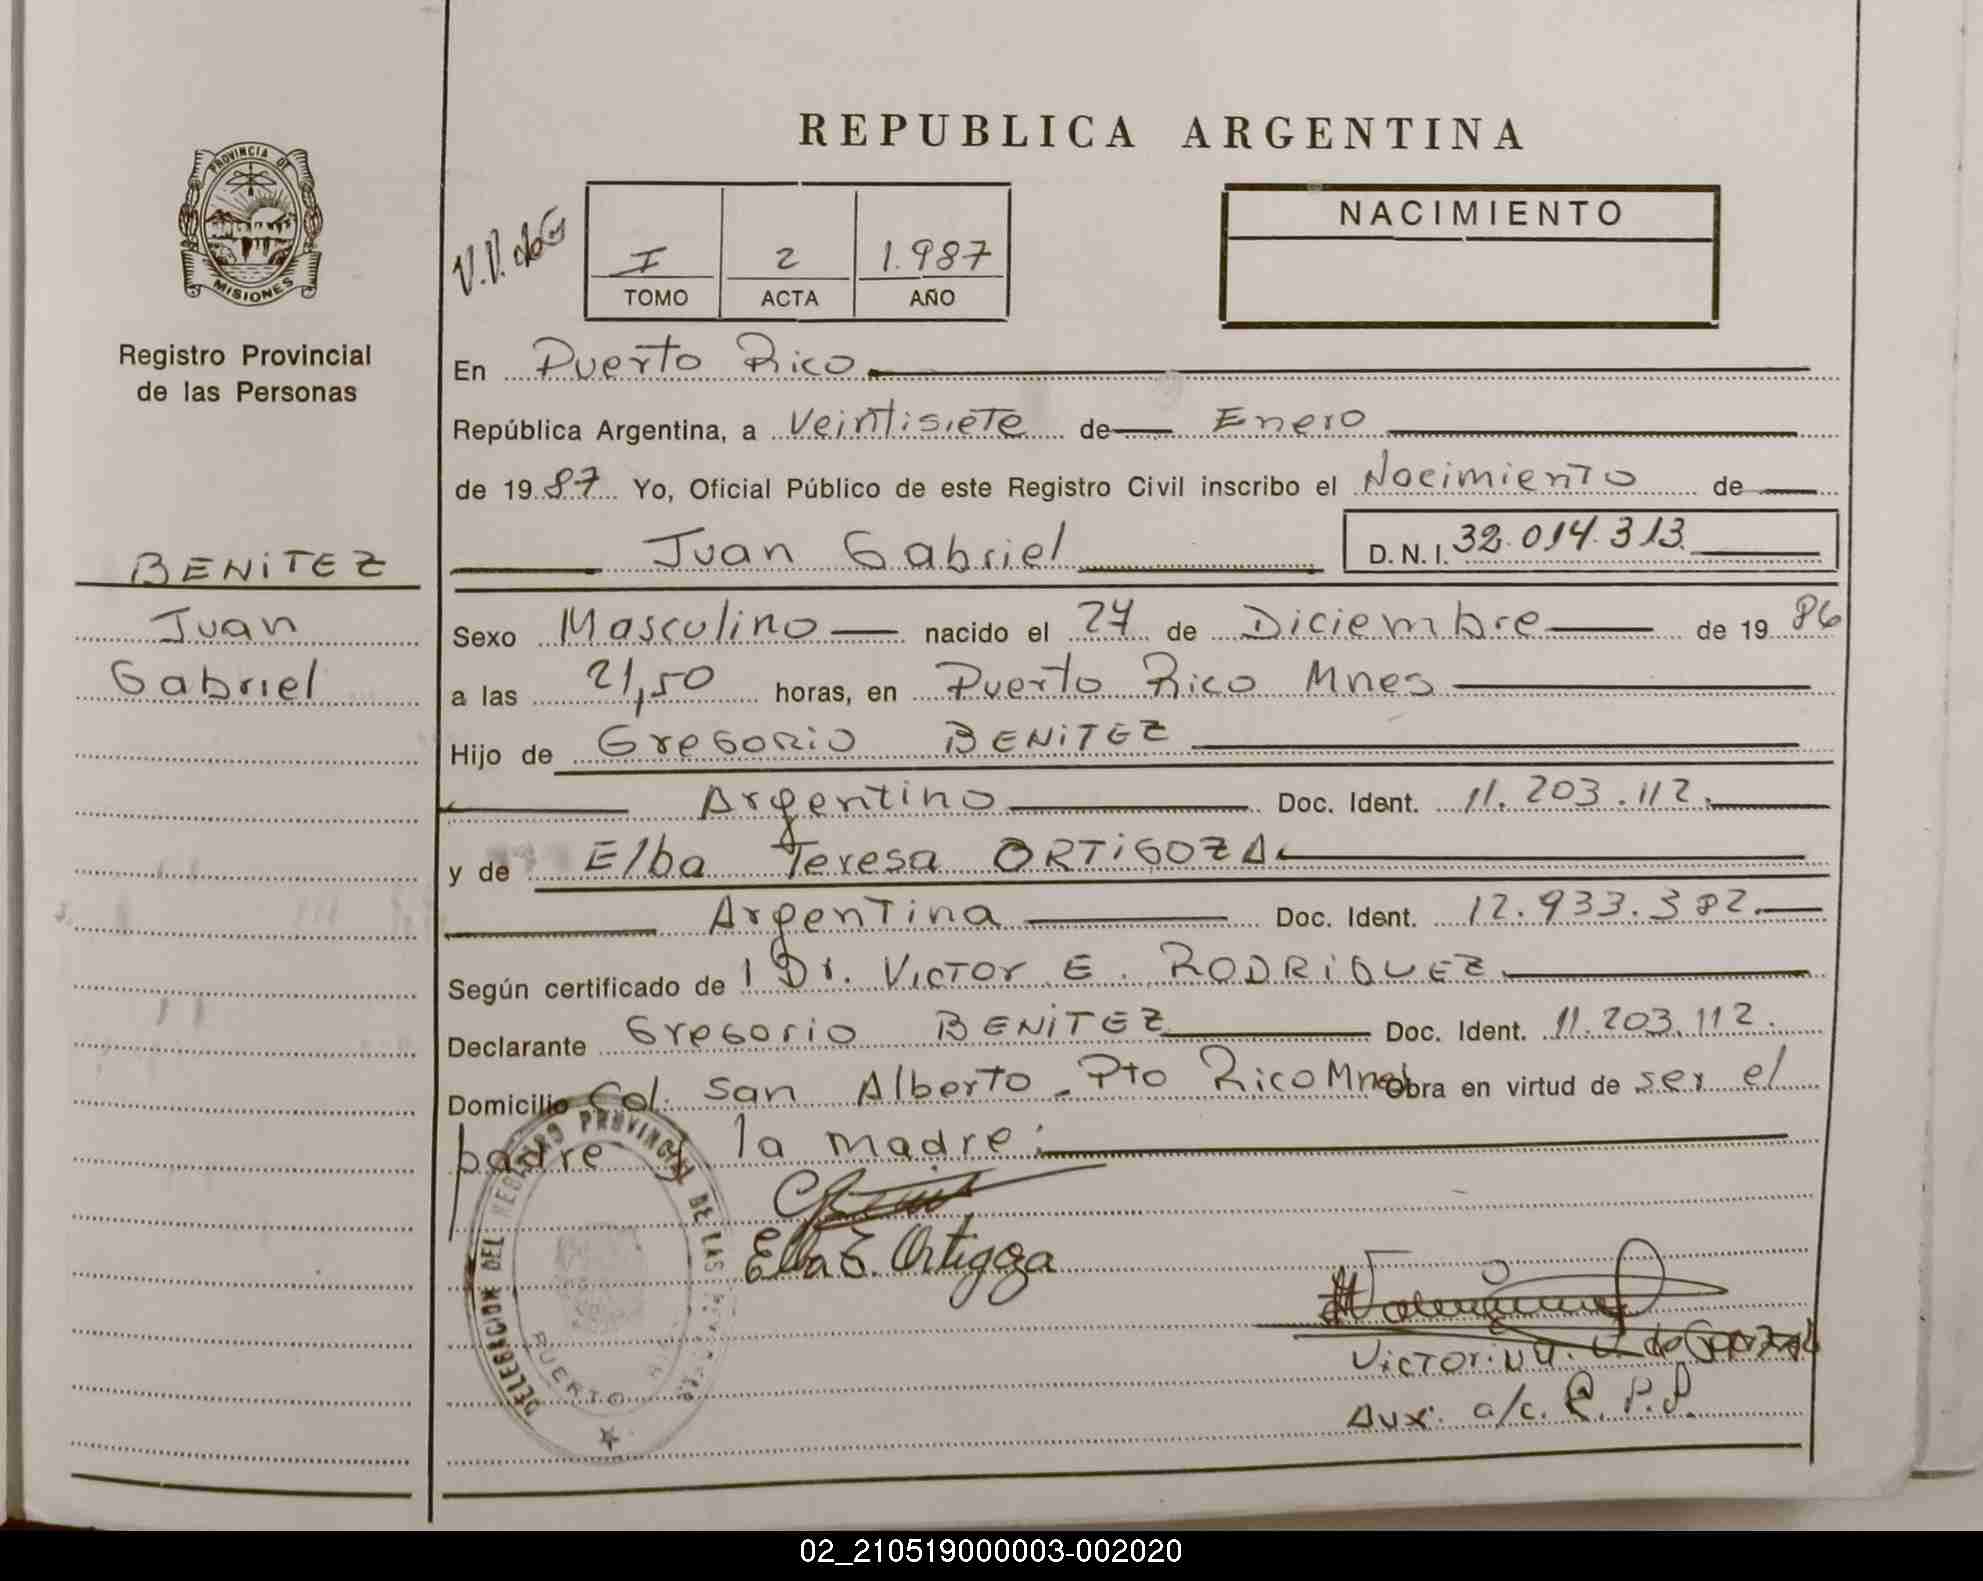 REPUBLICA ARGENTINA
PROVINCIA DE
MISIONES
Registro Provincial
de las Personas
BENITEZ
Juan
Gabriel
V.V. de G
I 2 1.987
TOMO ACTA AÑO
NACIMIENTO
En Puerto Rico
República Argentina, a Veintisiete de Enero
de 1987 Yo, Oficial Público de este Registro Civil inscribo el Nacimiento de
Juan Gabriel D.N.I. 32.014.313
Sexo Masculino nacido el 27 de Diciembre de 1986
a las 21,50 horas, en Puerto Rico Mnes
Hijo de Gregorio BENITEZ
Argentino Doc. Ident. 11.203.112.
y de Elba Teresa ORTIGOZA
Argentina Doc. Ident. 12.933.382.
Según certificado de l Dr. Victor E. RODRIGUEZ
Declarante Gregorio BENITEZ Doc. Ident. 11.203.112.
Domicilio Col. San Alberto - Pto Rico Mnes Obra en virtud de ser el
padre y la madre:
Elba T. Ortigoza
DELEGACION DEL REGISTRO PROVINCIAL DE LAS
PUERTO
Victorina V. de Gonzal
Aux. a/c. R.P.P.
02_210519000003-002020